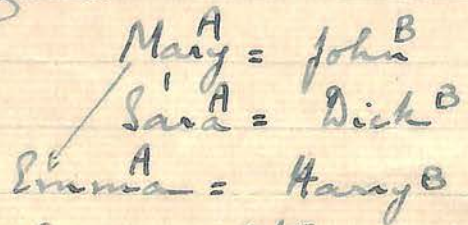 Mary A = John B
Sara A = Dick B
Emma A = Harry B